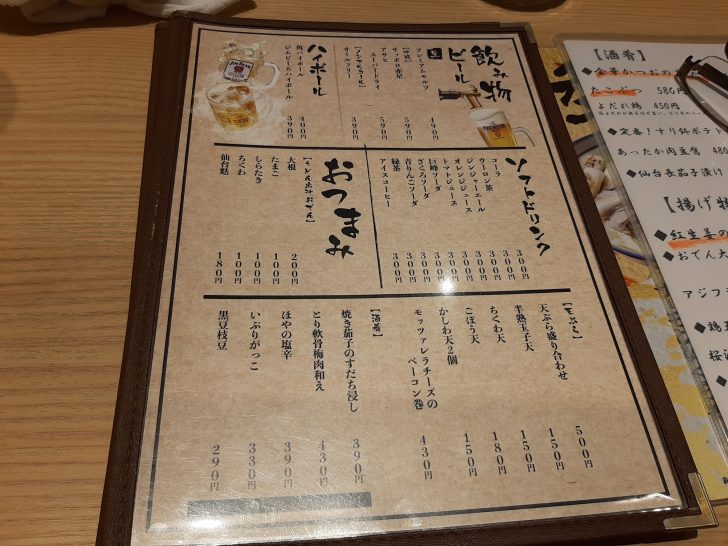 飲み物
ビール
生
プレミアムモルツ 490円
【中瓶】
サッポロ赤星 590円
アサヒ
スーパードライ 590円
【ノンアルコール】
オールフリー 390円
ハイボール
角ハイボール 400円
ジムビームハイボール 390円
ソフトドリンク
コーラ 300円
ウーロン茶 300円
ジンジャーエール 300円
オレンジジュース 300円
トマトジュース 300円
巨峰ソーダ 300円
ざくろソーダ 300円
青りんごソーダ 300円
緑茶 300円
アイスコーヒー 300円
おつまみ
【うどん出汁おでん】
大根 200円
たまご 100円
しらたき 100円
ちくわ 100円
仙台麩 180円
【天ぷら】
天ぷら盛り合わせ 500円
半熟玉子天 150円
ちくわ天 180円
ごぼう天 150円
かしわ天2個
モッツァレラチーズの
ベーコン巻 430円
【酒肴】
焼き茄子のすだち浸し 390円
とり軟骨梅肉和え 430円
ほやの塩辛 390円
いぶりがっこ 330円
黒豆枝豆 290円
【酒肴】
◆金華かつおの
たこぶ 580円
よだれ鶏 450円
◆定番!すり鉢ポテト
あったか肉豆腐 480
◆仙台長茄子漬け
【揚げ物
◆紅生姜の
◆おでん大
アジフラ
◆鶏
桜